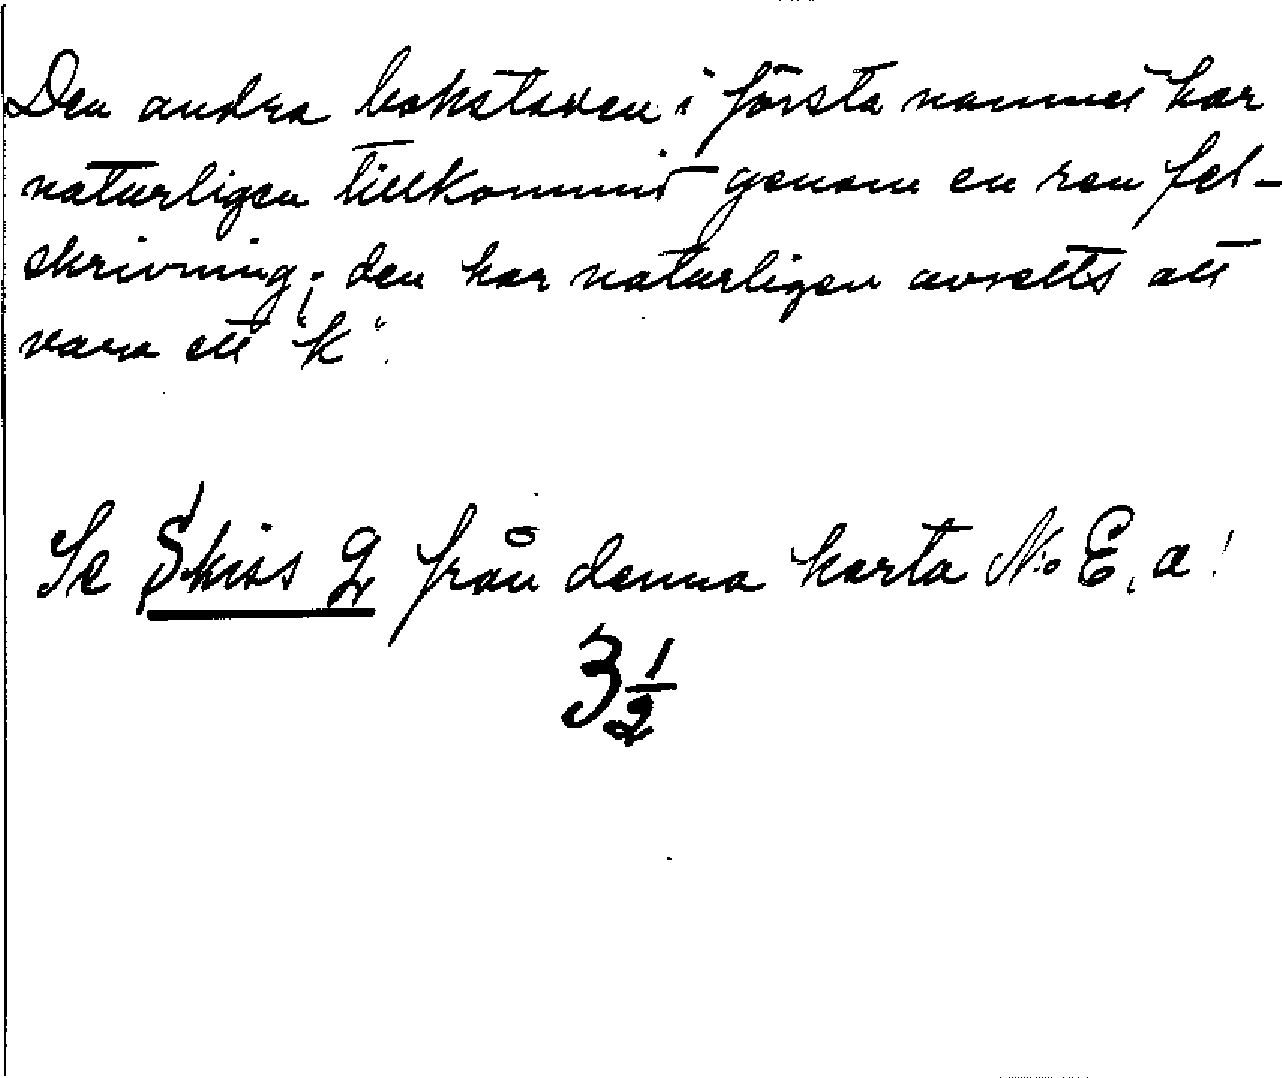 Den andra bokstaven i första namnet har
naturligen tillkommit genom en ren fel-
skrivning; den har naturligen avsetts att
vara ett "k".
Se Skiss 2 från denna karta No E. a!
3 1/2